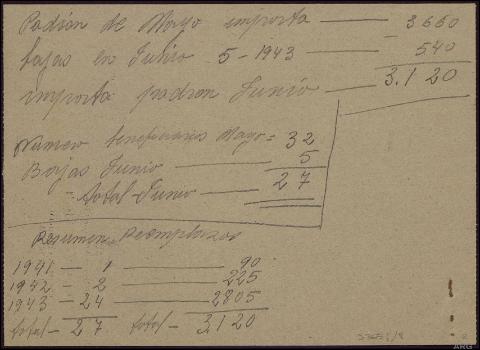 Padron de Mayo importa — 3660
bajas en Junio 5-1943 — 540
importa padron Junio — 3.120
Numero beneficiarios Mayo = 32
Bajas Junio — 5
total Junio — 27
Resumen Reemplazos
1941 — 1 — 90
1942 — 2 — 225
1943 — 24 — 2805
total — 27 total — 3120
ARG